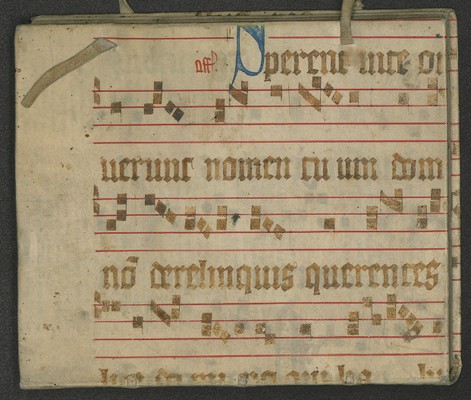 off. Sperent in te om
uerunt nomen tu um dom
nō derelinquis querentes